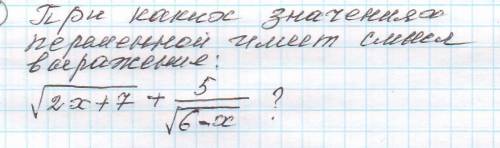 При каких значениях
переменной имеет смысл
выражение:
√(2x+7) + 5/√(6-x) ?